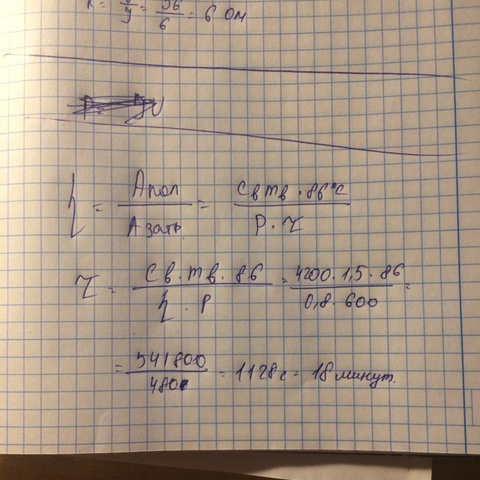 = 56/6 = 6 Ом
η = Апол/Азатр = Cв mв · 86°C/P · τ
τ = Cв · mв · 86/η · P = 4200 · 1,5 · 86/0,8 · 600 =
= 541800/480 = 1128 с = 18 минут.